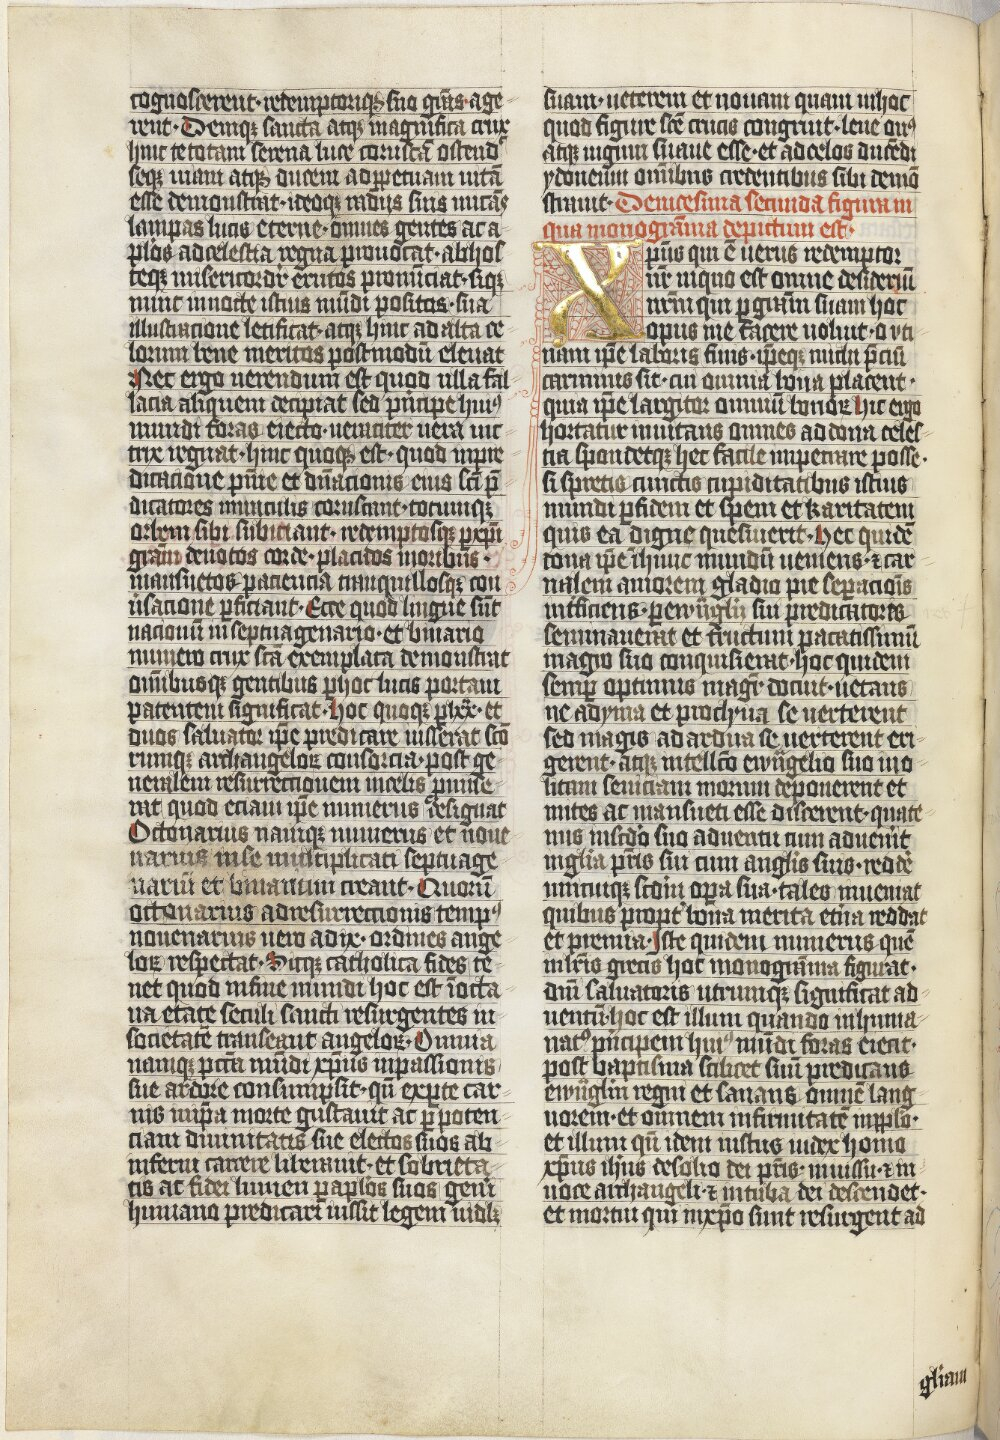 cognoscerent· redemptoriqꝫ suo grãs age
rent· Deniqꝫ sancta atqꝫ magnifica crux
hinc te totam serena luce coruscã ostend̾
seqꝫ viam atqꝫ ducem ad ꝑpetuam vitã
esse demonstrat· ideoqꝫ radijs suis micãs
lampas lucis eterne· omnes gentes ac a
plos ad celestia regna prouocat· ab hos
teqꝫ misericordit̾ erutos pronũciat· sicqꝫ
nunc in nocte istius mũdi positos· sua
illustracione letificat· atqꝫ hinc ad alta ce
lorum bene meritos postmodũ eleuat
Nec ergo uerendum est quod illa fal
lacia aliquem decipiat sed pͥncipe huiꝰ
mundi foras eiecto· ueraciter uera uic
trix regnat· hinc quoqꝫ est· quod in pre
dicacione pñie et dñacionis eius sc̃i p̃
dicatores in uinculis coruscant· totumqꝫ
orbem sibi subiciant· redemptosqꝫ ꝑ xp̃i
grãm deuotos corde· placidos moribus·
mansuetos paciencia tranquillosqꝫ con
uersacione ꝑficiant· Ecce quod lingue sũt
nacionũ in septuagenario· et binario
numero crux sc̃a exemplata demonstrat
om̃ibusqꝫ gentibus ꝑ hoc lucis portam
patentem significat· Hoc quoqꝫ ꝑ lxx· et
duos saluator ip̃e predicare iusserat sc̃o
rumqꝫ archangeloꝝ consorcia· post ge
neralem resurrectionem in celis ꝓmise
rat quod eciam ip̃e numerus designat
Octonarius namqꝫ numerus et noue
narius in se multiplicati septuage
nariũ et binarium creant· Quorũ
octonarius ad resurrectionis tempꝰ
nouenarius uero ad ix· ordines ange
loꝝ respectat· Sicqꝫ catholica fides te
net quod in fine mundi hoc est ĩ octa
ua etate seculi sancti resurgentes in
societatẽ transeant angeloꝝ· Omnia
namqꝫ pctã mũdi xp̃us in passionis
sue ardore consumpsit· qũ ex ꝑte car
nis in ip̃a morte gustauit ac ꝑ poten
ciam diuinitatis sue electos suos ab
inferni carcere liberauit· et sobrieta
tis ac fidei lumen ꝑ aplos suos geni
humano predicari iussit legem uidlꝫ
suam· ueterem et nouam quam in hoc
quod figure sc̃e crucis congruit· leue onꝰ
atqꝫ iugum suaue esse· et ad celos ducẽdi
ydoneum om̃ibus credentibus sibi demõ
strauit· Deuicesima secunda figura in
qua monogrãma depictum est·
Xp̃us qui ẽ uerus redemptor
nr̃ in quo est omne desideriũ
nr̃m qui ꝑ grãm suam hoc
opus me facere uoluit· o uti
nam ip̃e laboris finis· ip̃eqꝫ michi p̃cisi
carminis sit· cui omnia bona placent·
quia ip̃e largitor omniũ bonoꝝ Hic ergo
hortatur inuitans omnes ad dona celes
tia spondetqꝫ hec facile impetrare posse·
si spretis cunctis cupiditatibus istius
mundi ꝑ fidem et spem et karitatem
quis ea digne quesiuerit· Hec quidẽ
dona ip̃e in hunc mundũ ueniens· ⁊ car
nalem amorem gladio pie seꝑacionis
interficiens· ꝑ ewãglij sui predicatores
seminauerat et fructum pacatissimũ
magno suo conquisierat· hoc quidem
semꝑ optimus magr̃ docuit· uetans
ne ad yma et prochiua se uerterent
sed magis ad ardua se uerterent eri
gerent· atqꝫ intellc̃o ewãgelio suo mo
litam seuiciam morum deponerent et
mites ac mansueti esse discerent· quate
nus in scd̃o suo aduentu cum aduenit
in glia pr̃is sui cum anglis suis· reddẽ
unicuiqꝫ scdm oꝑa sua· tales inueniat
quibus propt̾ bona merita et̃na reddat
et premia· Iste quidem numerus quẽ
in lr̃is grecis hoc monogrãma figurat·
dñi saluatoris utrumqꝫ significat ad
uentũ· hoc est illum quando inhuma
natꝰ pͥncipem huiꝰ mũdi foras eiecit·
post baptisma scilicet suũ predicans
ewãgliũ regni et sanans omnẽ lang
uorem· et omnem infirmitatẽ in pplo·
et illum qũ idem iustus iudex homo
xp̃us ih̃us de solio dei pr̃is· in iussu· ⁊ in
uoce archangeli· ⁊ in tuba dei descendet·
et mortui qui in xp̃o sunt resurgent ad
gliam